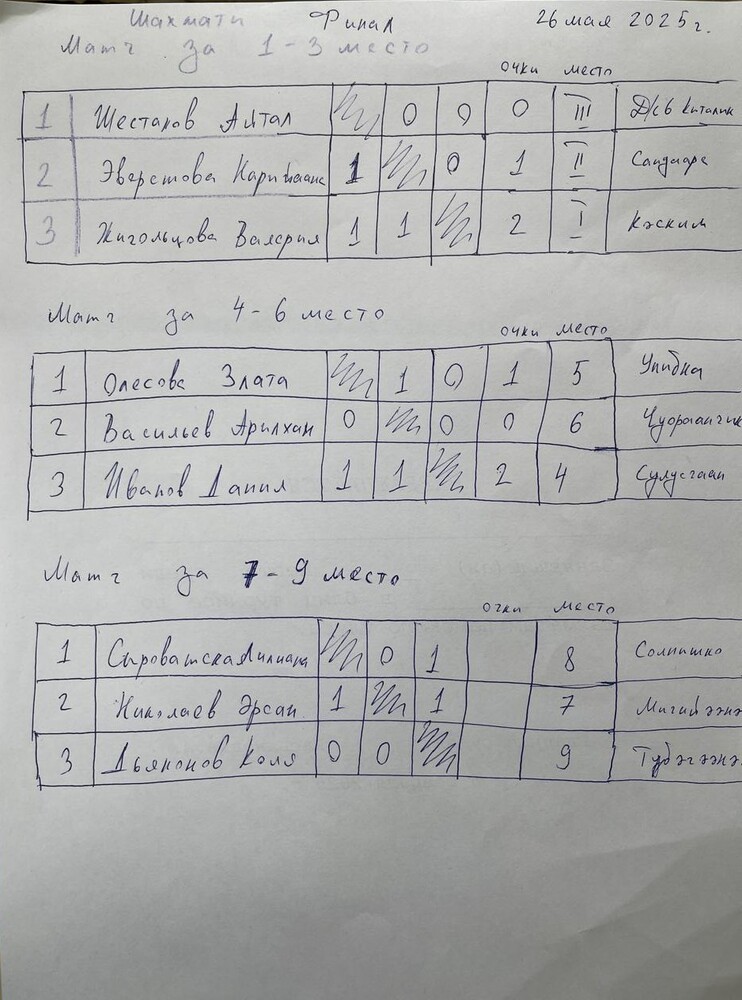 Шахмати Финал 26 мая 2025 г.
Матч за 1-3 место
очки место
1 Шестаков Айтал 0 0 0 III Д/св Киталик
2 Эверстова Карийаана 1 0 1 II Сандаара
3 Жигольцова Валерия 1 1 2 I Кэскил
Матч за 4-6 место
очки место
1 Олесова Злата 1 0 1 5 Улыбка
2 Васильев Арилхан 0 0 0 6 Чуораанчик
3 Иванов Данил 1 1 2 4 Сулусчаан
Матч за 7-9 место
очки место
1 Сыроватская Лилиана 0 1 8 Солнышко
2 Николаев Эрсан 1 1 7 Мичийээнэ
3 Дьяконов Коля 0 0 9